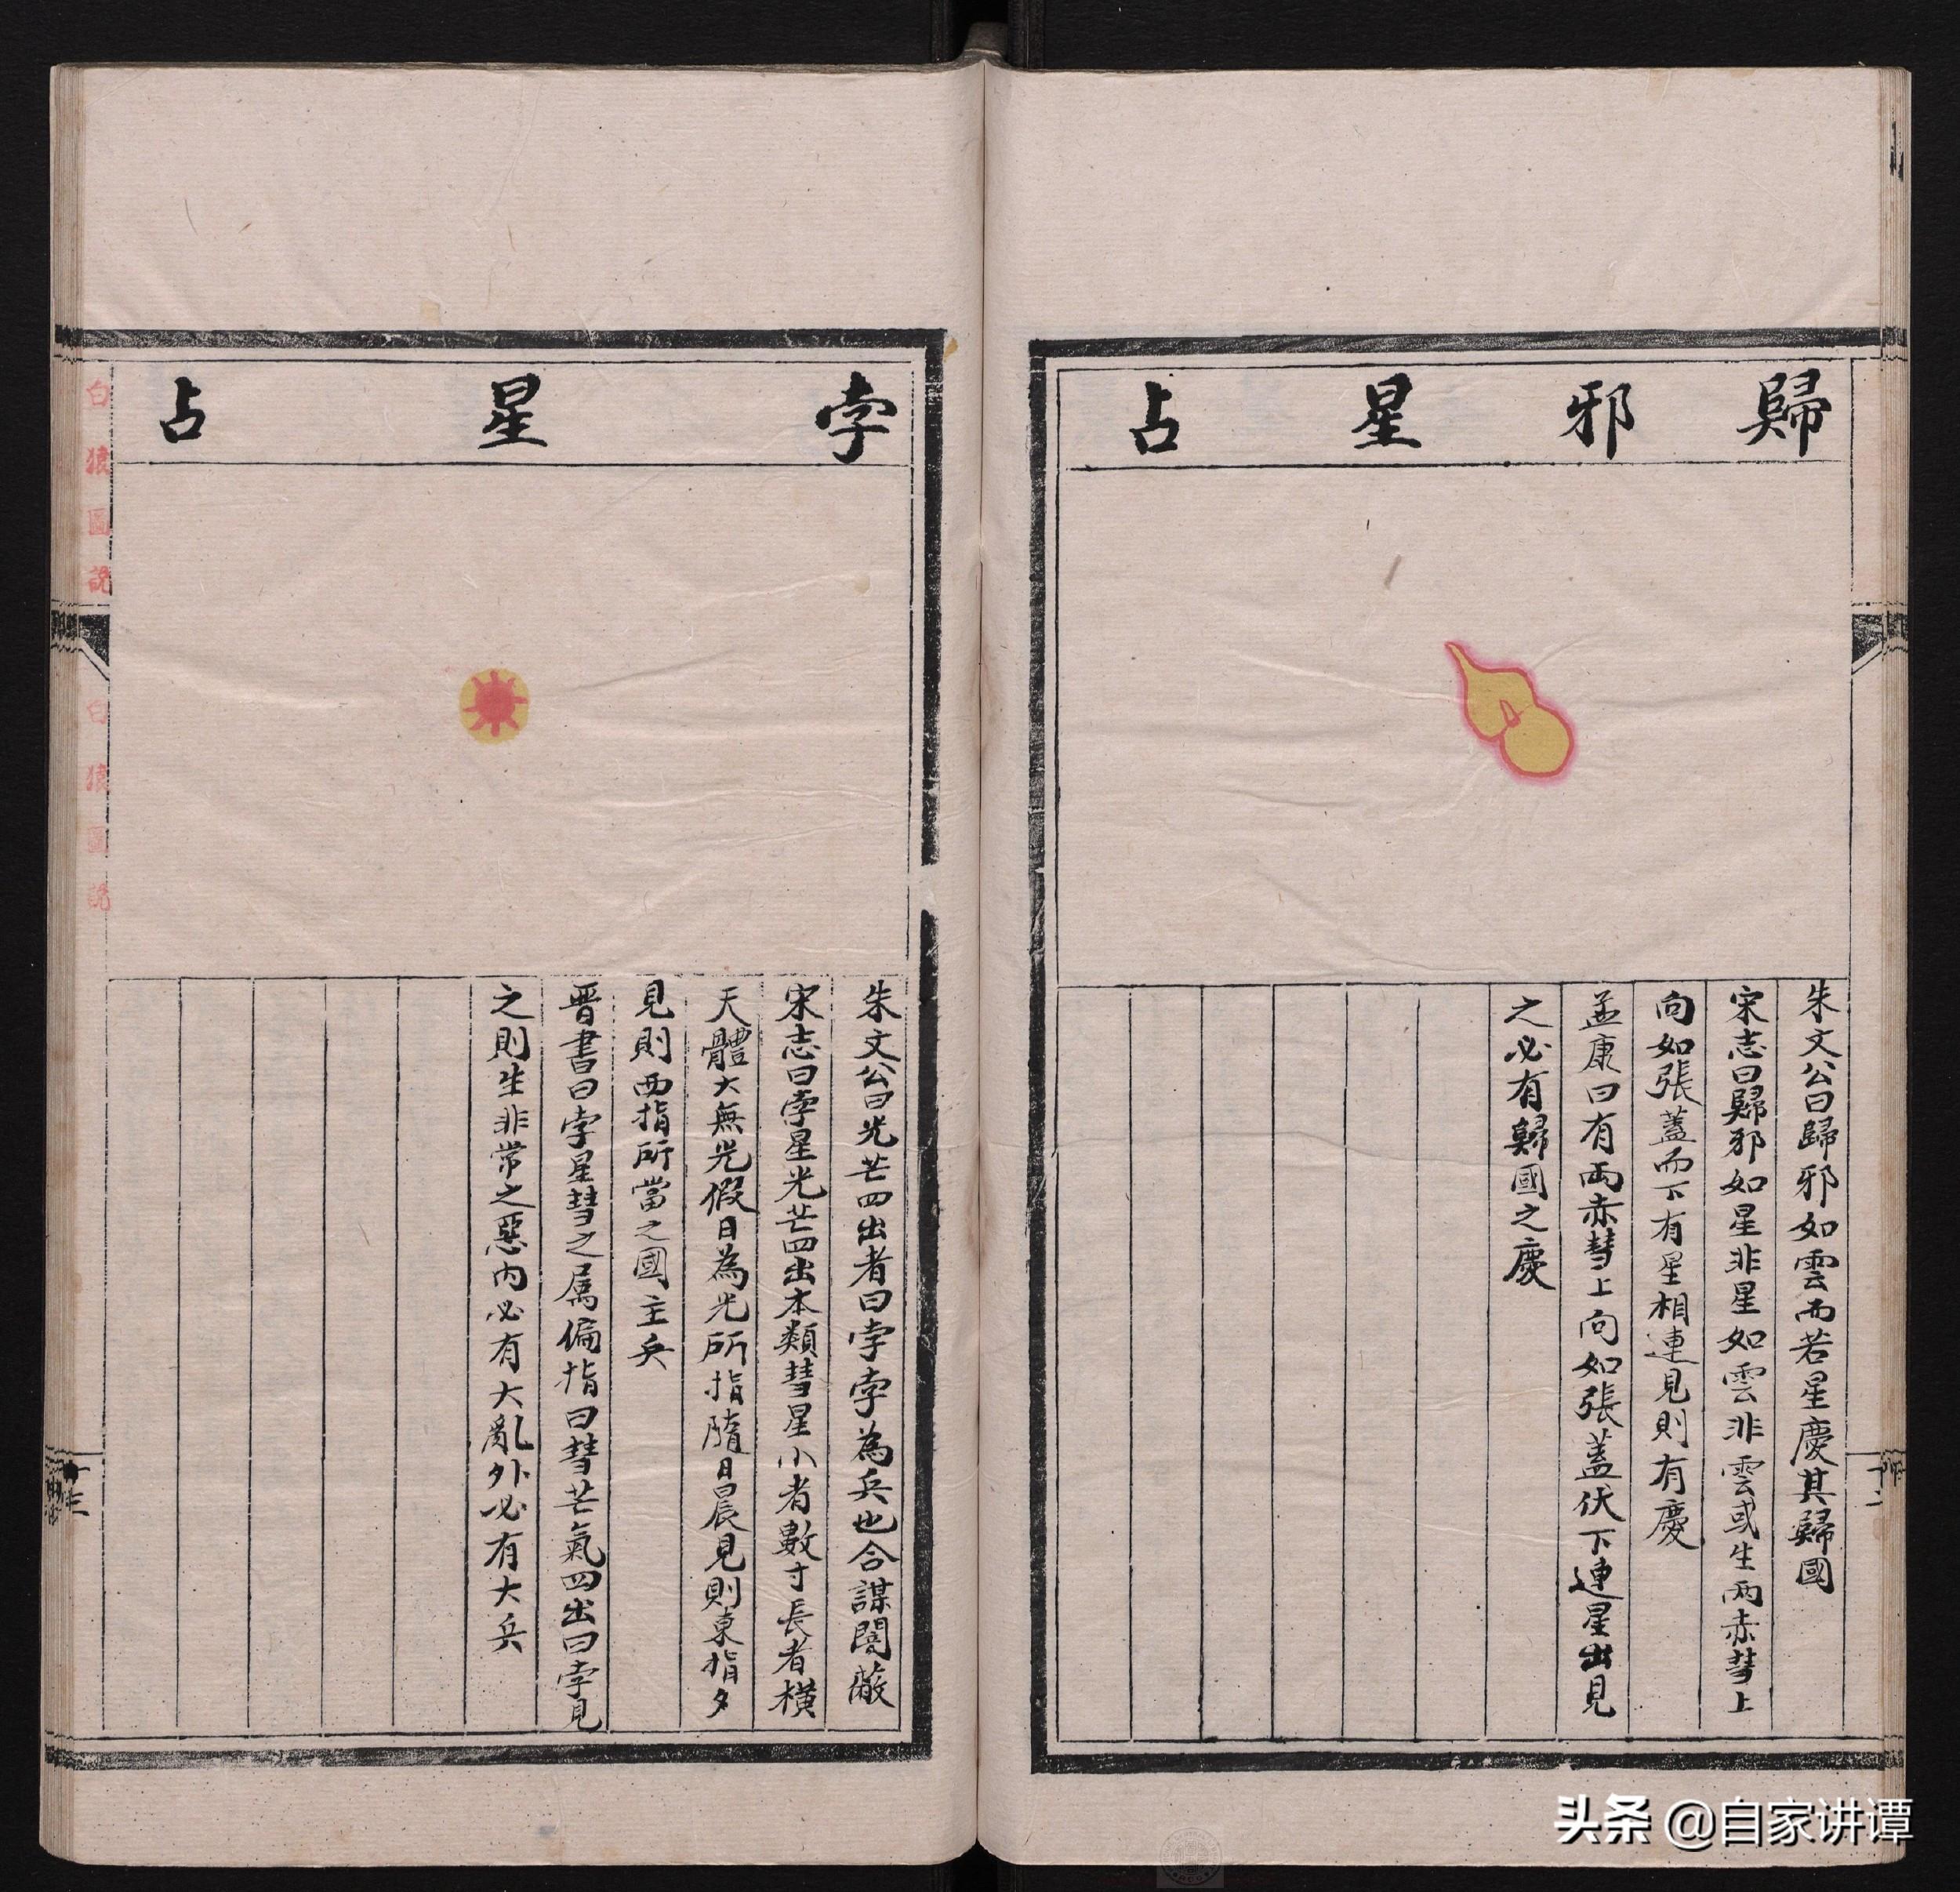 歸邪星占
朱文公曰歸邪如雲而若星慶其歸國
宋志曰歸邪如星非星如雲非雲或生兩赤彗上
向如張蓋而下有星相連見則有慶
孟康曰有兩赤彗上向如張蓋伏下連星出見
之必有歸國之慶
十二
孛星占
朱文公曰光芒四出者曰孛孛為兵也合謀闇蔽
宋志曰孛星光芒四出本類彗星小者數寸長者橫
天體大無光假日為光所指隨日晨見則東指夕
見則西指所當之國主兵
晋書曰孛星彗之属偏指曰彗芒氣四出曰孛見
之則生非常之惡內必有大亂外必有大兵
白猿圖說
白猿圖說
头条 @自家讲谭